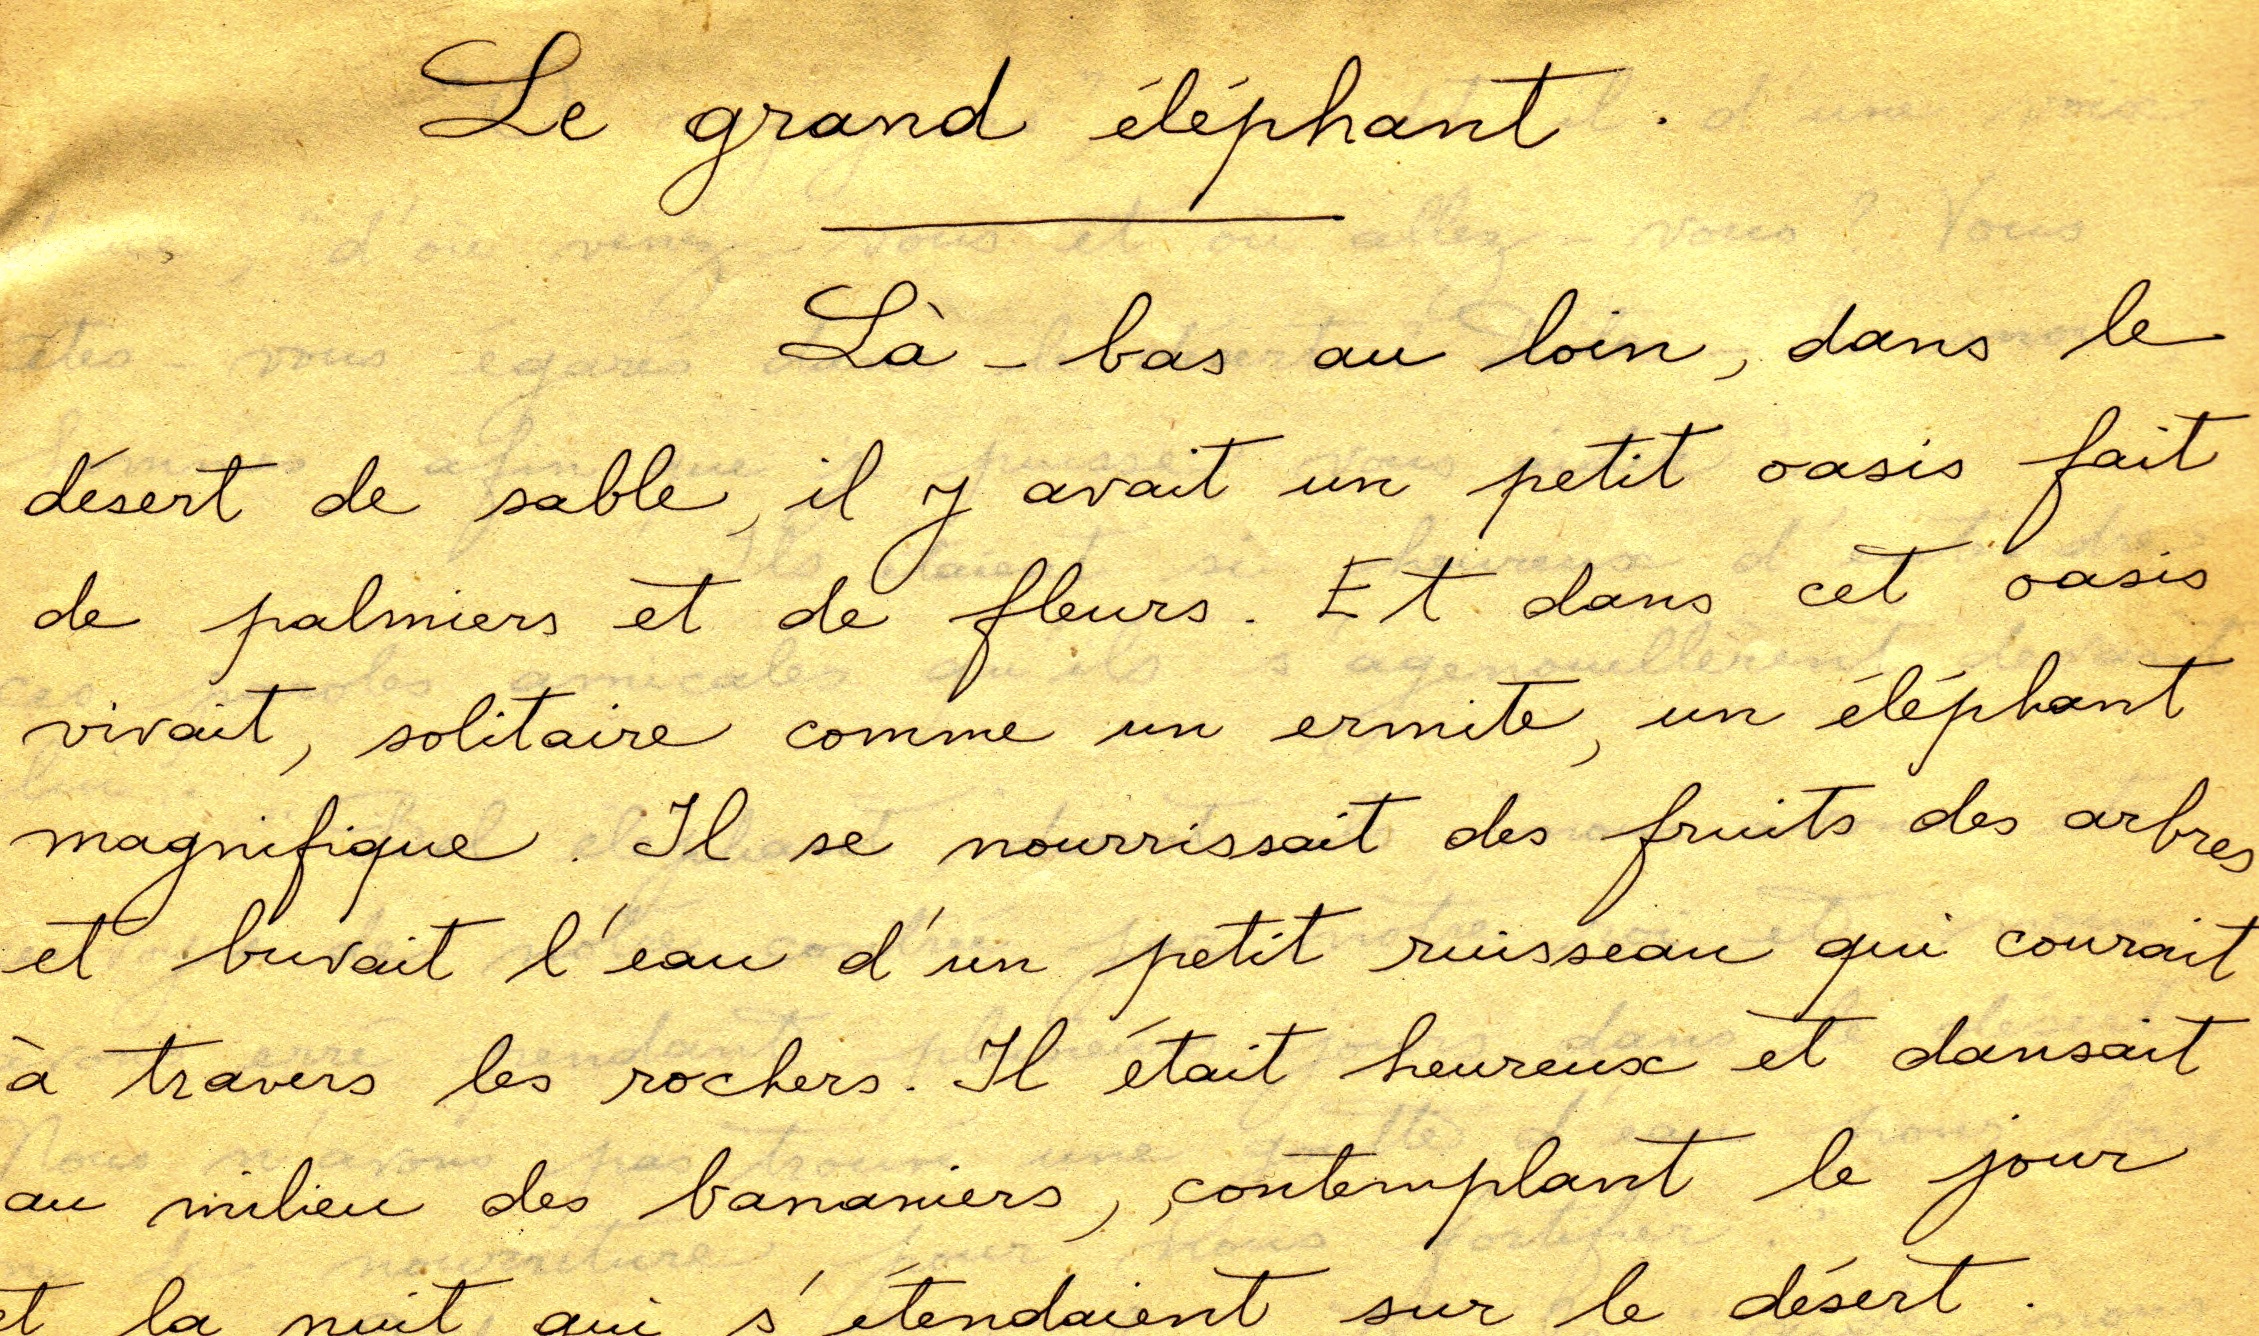 Le grand éléphant.
Là-bas au loin, dans le
désert de sable, il y avait un petit oasis fait
de palmiers et de fleurs. Et dans cet oasis
vivait, solitaire comme un ermite, un éléphant
magnifique. Il se nourrissait des fruits des arbres
et buvait l'eau d'un petit ruisseau qui courait
à travers les rochers. Il était heureux et dansait
au milieu des bananiers, contemplant le jour
et la nuit qui s'étendaient sur le désert.